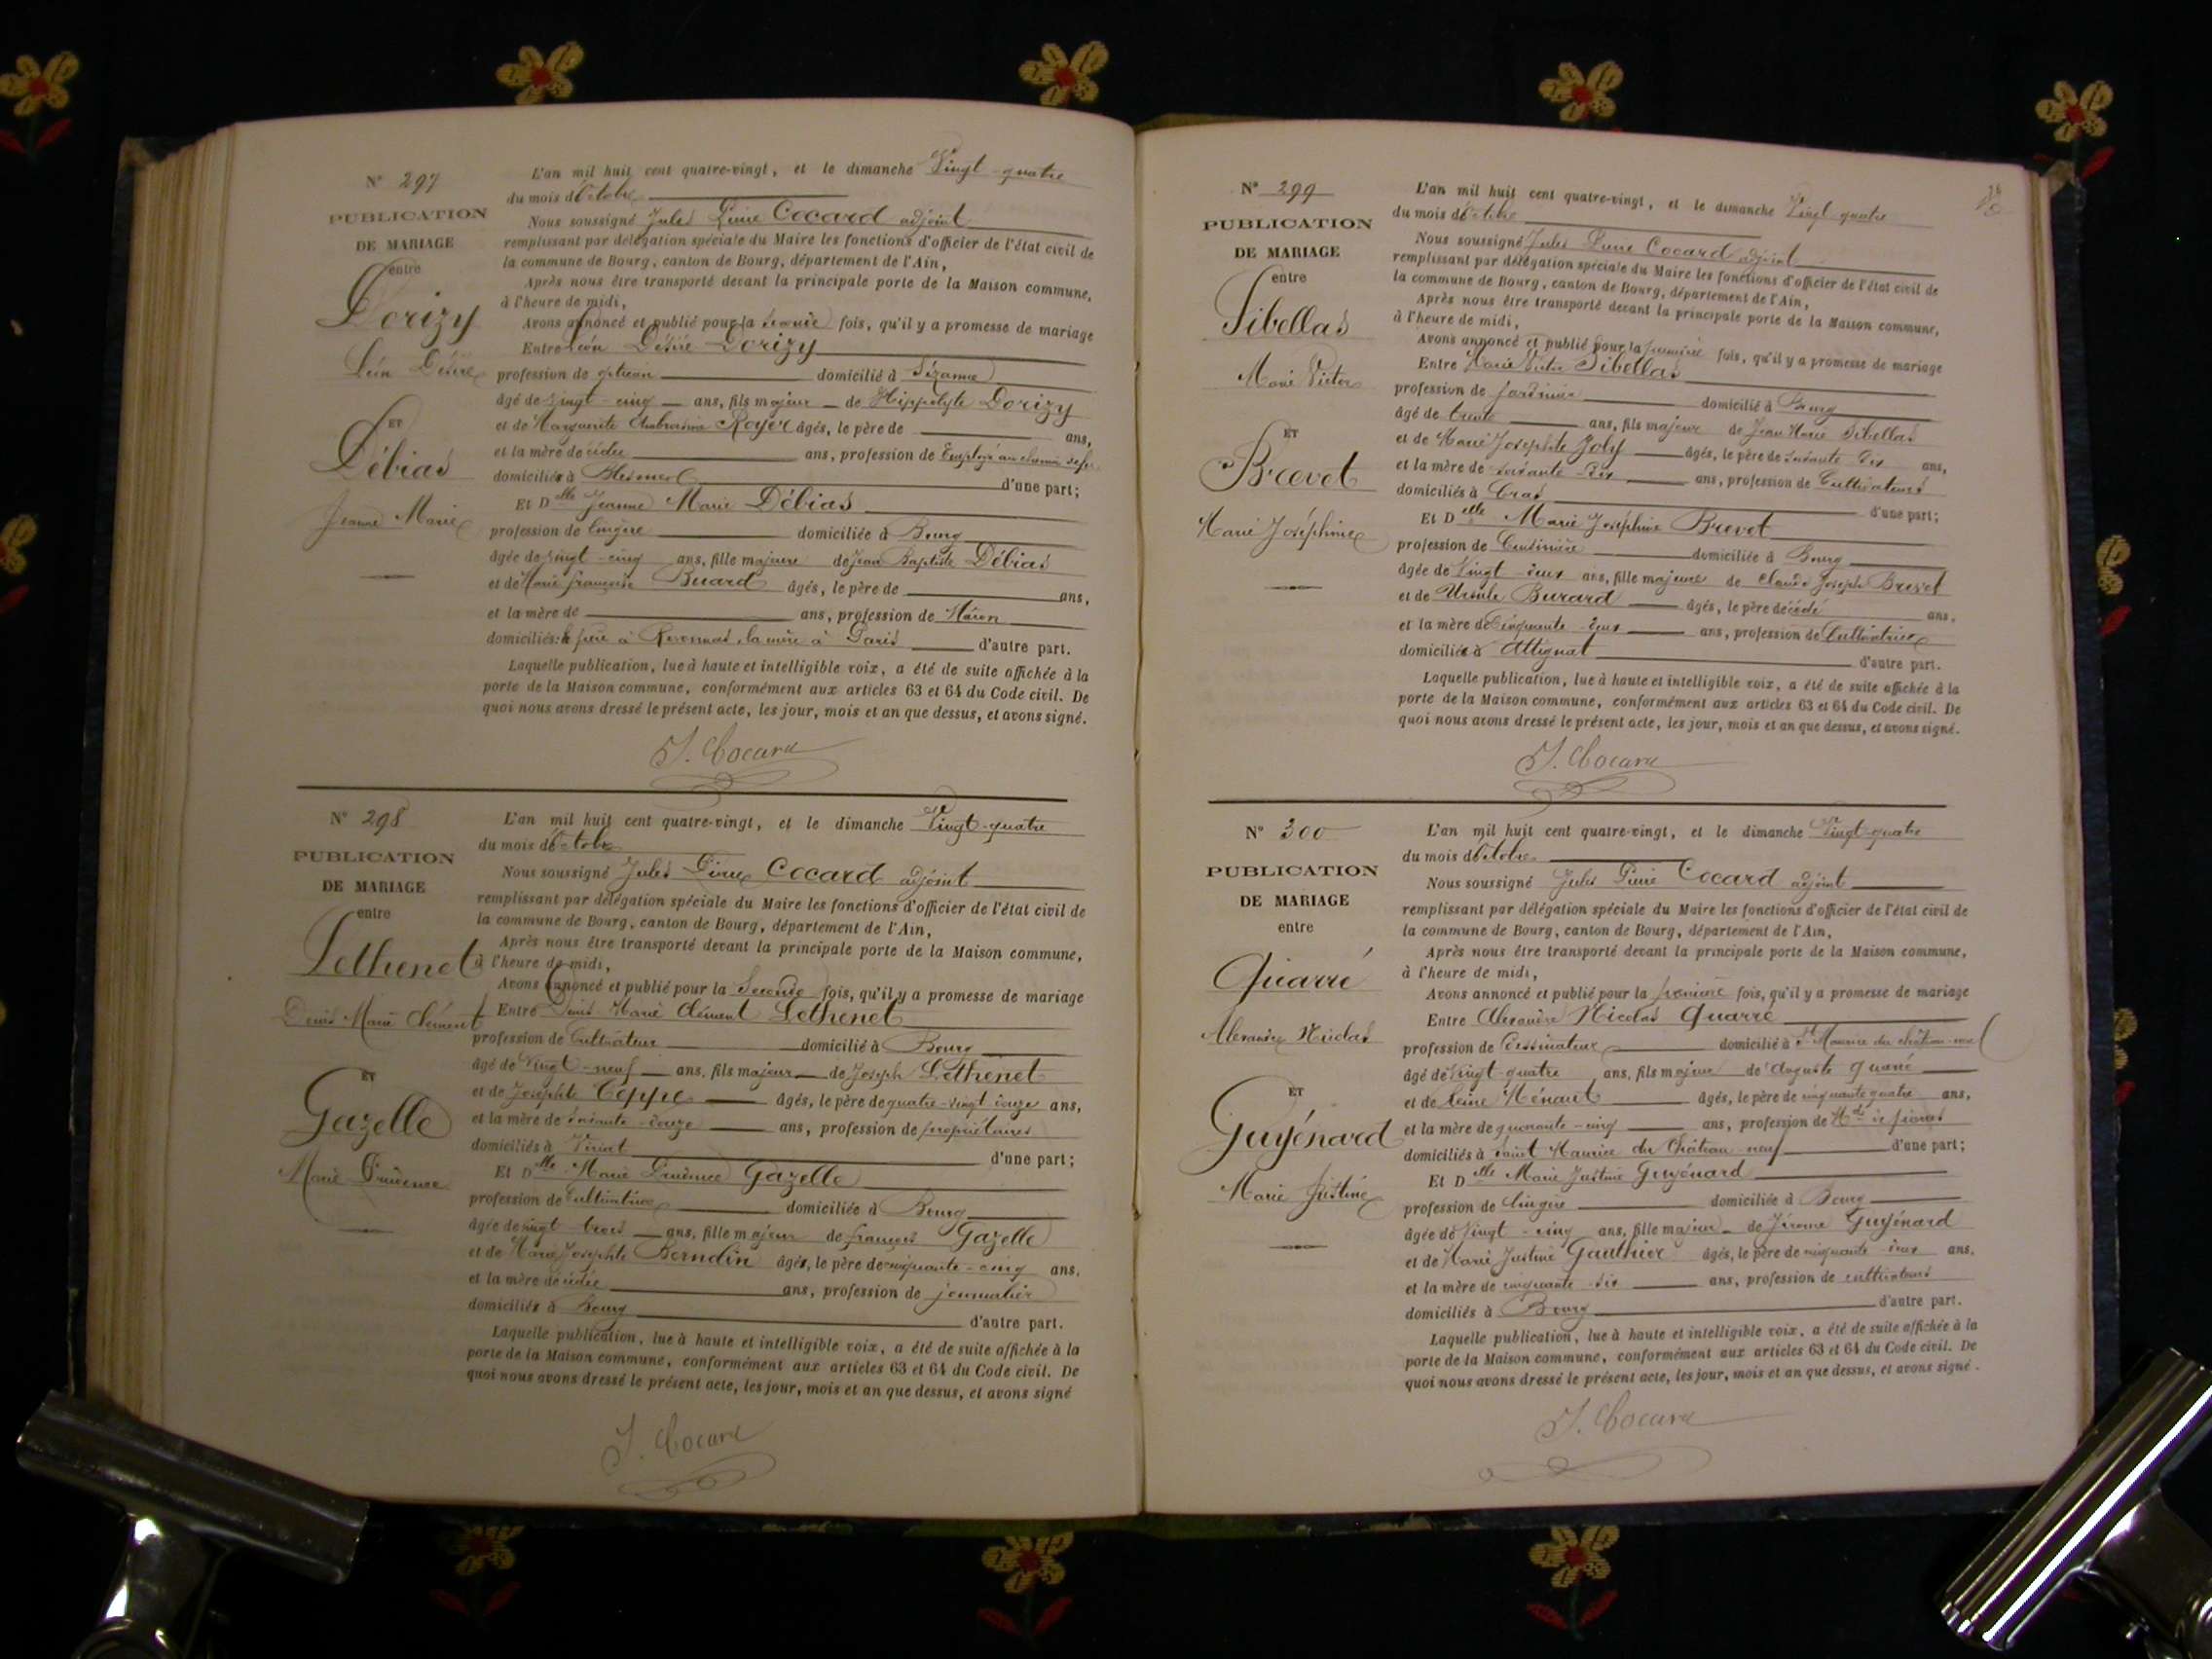 N° 297
PUBLICATION
DE MARIAGE
entre
Dorizy
Léon Désiré
ET
Débias
Jeanne Marie
L'an mil huit cent quatre-vingt, et le dimanche Vingt-quatre
du mois d'Octobre
Nous soussigné Jules Pierre Cocard adjoint
remplissant par délégation spéciale du Maire les fonctions d'officier de l'état civil de
la commune de Bourg, canton de Bourg, département de l'Ain,
Après nous être transporté devant la principale porte de la Maison commune,
à l'heure de midi,
Avons annoncé et publié pour la seconde fois, qu'il y a promesse de mariage
Entre Léon Désiré Dorizy
profession de opticien domicilié à Sézanne
âgé de vingt-cinq ans, fils majeur de Hippolyte Dorizy
et de Marguerite Ambroisine Royer âgés, le père de ans,
et la mère décédée ans, profession de Employé au chemin de fer
domicilié à d'une part;
Et Dlle Jeanne Marie Débias
profession de lingère domiciliée à Bourg
âgée de vingt-cinq ans, fille majeure de Jean Baptiste Débias
et de Marie françoise Buard âgés, le père de ans,
et la mère de ans, profession de Maçon
domiciliés: le père à Revonnas, la mère à Paris d'autre part.
Laquelle publication, lue à haute et intelligible voix, a été de suite affichée à la
porte de la Maison commune, conformément aux articles 63 et 64 du Code civil. De
quoi nous avons dressé le présent acte, les jour, mois et an que dessus, et avons signé.
J. Cocard
N° 298
PUBLICATION
DE MARIAGE
entre
Lethenet
Denis Marie Clément
ET
Gazelle
Marie Prudence
L'an mil huit cent quatre-vingt, et le dimanche Vingt-quatre
du mois d'Octobre
Nous soussigné Jules Pierre Cocard adjoint
remplissant par délégation spéciale du Maire les fonctions d'officier de l'état civil de
la commune de Bourg, canton de Bourg, département de l'Ain,
Après nous être transporté devant la principale porte de la Maison commune,
à l'heure de midi,
Avons annoncé et publié pour la Seconde fois, qu'il y a promesse de mariage
Entre Denis Marie Clément Lethenet
profession de Cultivateur domicilié à Bourg
âgé de Vingt-neuf ans, fils majeur de Joseph Lethenet
et de Josephte Teppe âgés, le père de quatre-vingt douze ans,
et la mère de soixante-douze ans, profession de propriétaires
domiciliés à d'une part;
Et Dlle Marie Prudence Gazelle
profession de Cultivatrice domiciliée à Bourg
âgée de vingt-trois ans, fille majeure de françois Gazelle
et de Marie Josephte Berndin âgés, le père de cinquante-cinq ans,
et la mère décédée ans, profession de journalier
domicilié à Bourg d'autre part.
Laquelle publication, lue à haute et intelligible voix, a été de suite affichée à la
porte de la Maison commune, conformément aux articles 63 et 64 du Code civil. De
quoi nous avons dressé le présent acte, les jour, mois et an que dessus, et avons signé
J. Cocard
N° 299
PUBLICATION
DE MARIAGE
entre
Sibellas
Marie Victor
ET
Brevet
Marie Joséphine
L'an mil huit cent quatre-vingt, et le dimanche Vingt quatre
du mois d'Octobre
Nous soussigné Jules Pierre Cocard adjoint
remplissant par délégation spéciale du Maire les fonctions d'officier de l'état civil de
la commune de Bourg, canton de Bourg, département de l'Ain,
Après nous être transporté devant la principale porte de la Maison commune,
à l'heure de midi,
Avons annoncé et publié pour la première fois, qu'il y a promesse de mariage
Entre Marie Victor Sibellas
profession de Jardinier domicilié à Bourg
âgé de trente ans, fils majeur de Jean Marie Sibellas
et de Marie Josephte Joly âgés, le père de soixante-dix ans,
et la mère de soixante-dix ans, profession de Cultivateurs
domiciliés à Cras d'une part;
Et Delle Marie Joséphine Brevet
profession de Cuisinière domiciliée à Bourg
âgée de Vingt-deux ans, fille majeure de Claude Joseph Brevet
et de Ursule Burard âgés, le père décédé ans,
et la mère de Cinquante-deux ans, profession de Cultivatrice
domiciliée à Attignat d'autre part.
Laquelle publication, lue à haute et intelligible voix, a été de suite affichée à la
porte de la Maison commune, conformément aux articles 63 et 64 du Code civil. De
quoi nous avons dressé le présent acte, les jour, mois et an que dessus, et avons signé.
J. Cocard
N° 300
PUBLICATION
DE MARIAGE
entre
Quarré
Alexandre Nicolas
ET
Guyénard
Marie Justine
L'an mil huit cent quatre-vingt, et le dimanche Vingt-quatre
du mois d'Octobre
Nous soussigné Jules Pierre Cocard adjoint
remplissant par délégation spéciale du Maire les fonctions d'officier de l'état civil de
la commune de Bourg, canton de Bourg, département de l'Ain,
Après nous être transporté devant la principale porte de la Maison commune,
à l'heure de midi,
Avons annoncé et publié pour la première fois, qu'il y a promesse de mariage
Entre Alexandre Nicolas Quarré
profession de Dessinateur domicilié à St Maurice du château-neuf
âgé de Vingt-quatre ans, fils majeur de Auguste Quarré
et de Reine Ménaut âgés, le père de cinquante quatre ans,
et la mère de quarante-cinq ans, profession de Mds de
domiciliés à Saint Maurice du Château neuf d'une part;
Et Dlle Marie Justine Guyénard
profession de lingère domiciliée à Bourg
âgée de Vingt-cinq ans, fille majeure de Jérome Guyénard
et de Marie Justine Gauthier âgés, le père de cinquante-deux ans.
et la mère de cinquante-six ans, profession de cultivateurs
domiciliés à Bourg d'autre part.
Laquelle publication, lue à haute et intelligible voix, a été de suite affichée à la
porte de la Maison commune, conformément aux articles 63 et 64 du Code civil. De
quoi nous avons dressé le présent acte, les jour, mois et an que dessus, et avons signé.
J. Cocard